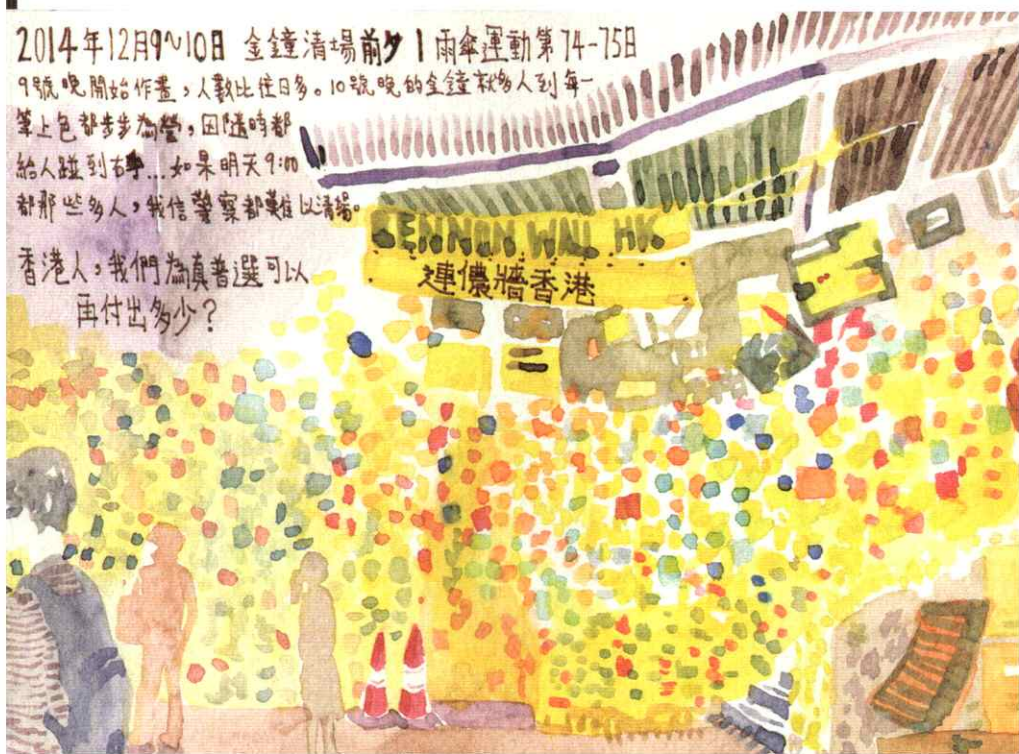 2014年12月9~10日 金鐘清場前夕 | 雨傘運動第74-75日
9號晚開始作畫，人數比往日多。10號晚的金鐘就多人到每一
筆上色都步步為營，因隨時都
給人踫到右手...如果明天9:00
都那些多人，我信警察都難以清場。
香港人，我們為真普選可以
再付出多少？
LENNON WALL HK
連儂牆香港